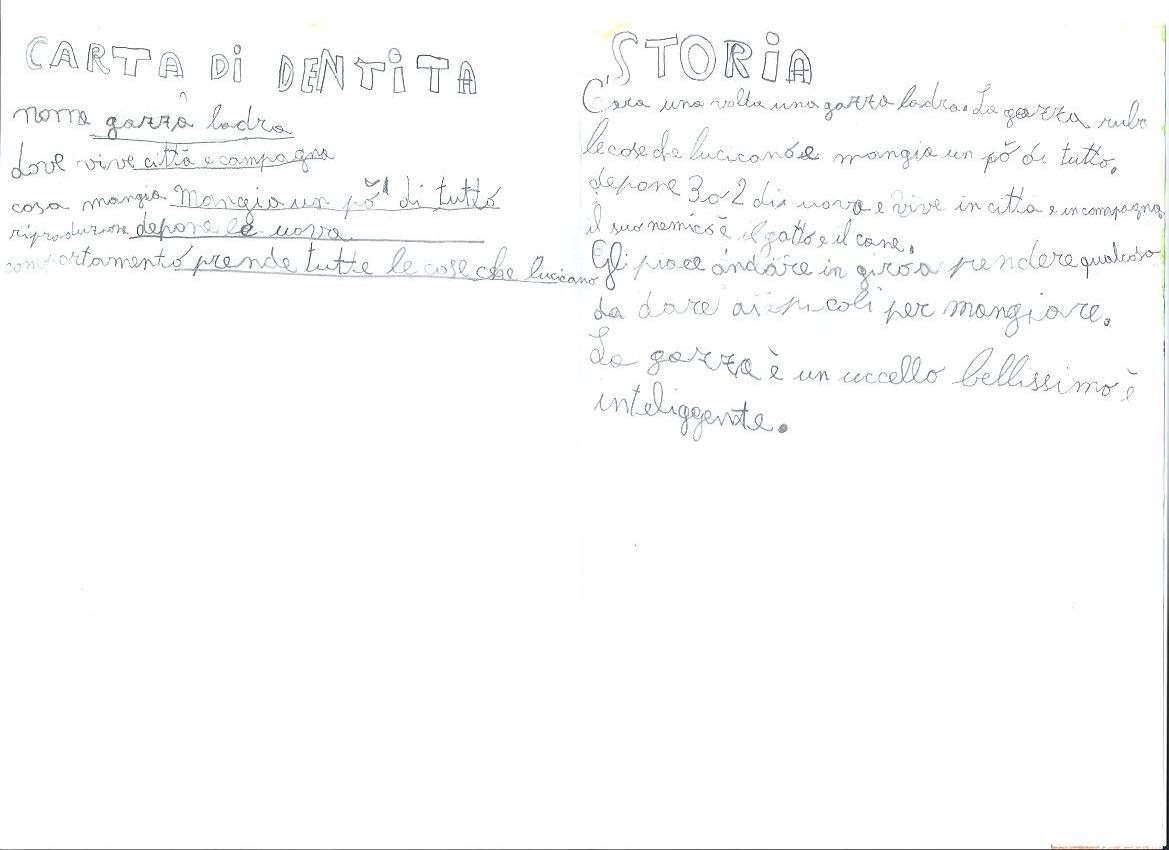 CARTA Di DENTiTA
nome gazza ladra
dove vive città e campagna
cosa mangia Mangia un pò di tutto
riproduzione depone le uova
comportamento prende tutte le cose che lucicano
STORiA
C'era una volta una gazza ladra. La gazza ruba
le cose che lucicano e mangia un pò di tutto.
depone 3 o 2 di uova e vive in città e in campagna
il suo nemico è il gatto e il cane.
Gli piace andare in giro a prendere qualcosa
da dare ai picoli per mangiare.
La gazza è un uccello bellissimo è
inteliggente.